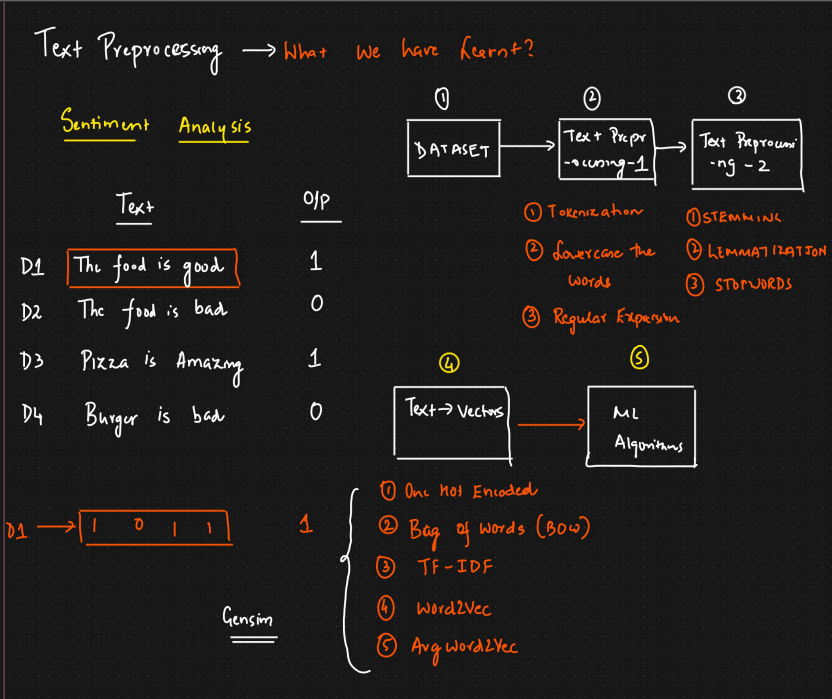 Text Preprocessing → What we have Learnt?
Sentiment Analysis
Text O/P
D1 The food is good 1
D2 The food is bad 0
D3 Pizza is Amazing 1
D4 Burger is bad 0
D1 → 1 0 1 1 1
Gensim
①
DATASET
②
Text Prepr
-ocessing-1
① Tokenization
② Lowercase the
words
③ Regular Expression
③
Text Preprocessi
-ng - 2
① STEMMING
② LEMMATIZATION
③ STOPWORDS
④
Text → Vectors
⑤
ML
Algorithms
① One Hot Encoded
② Bag of words (BOW)
③ TF-IDF
④ Word2Vec
⑤ AvgWord2Vec